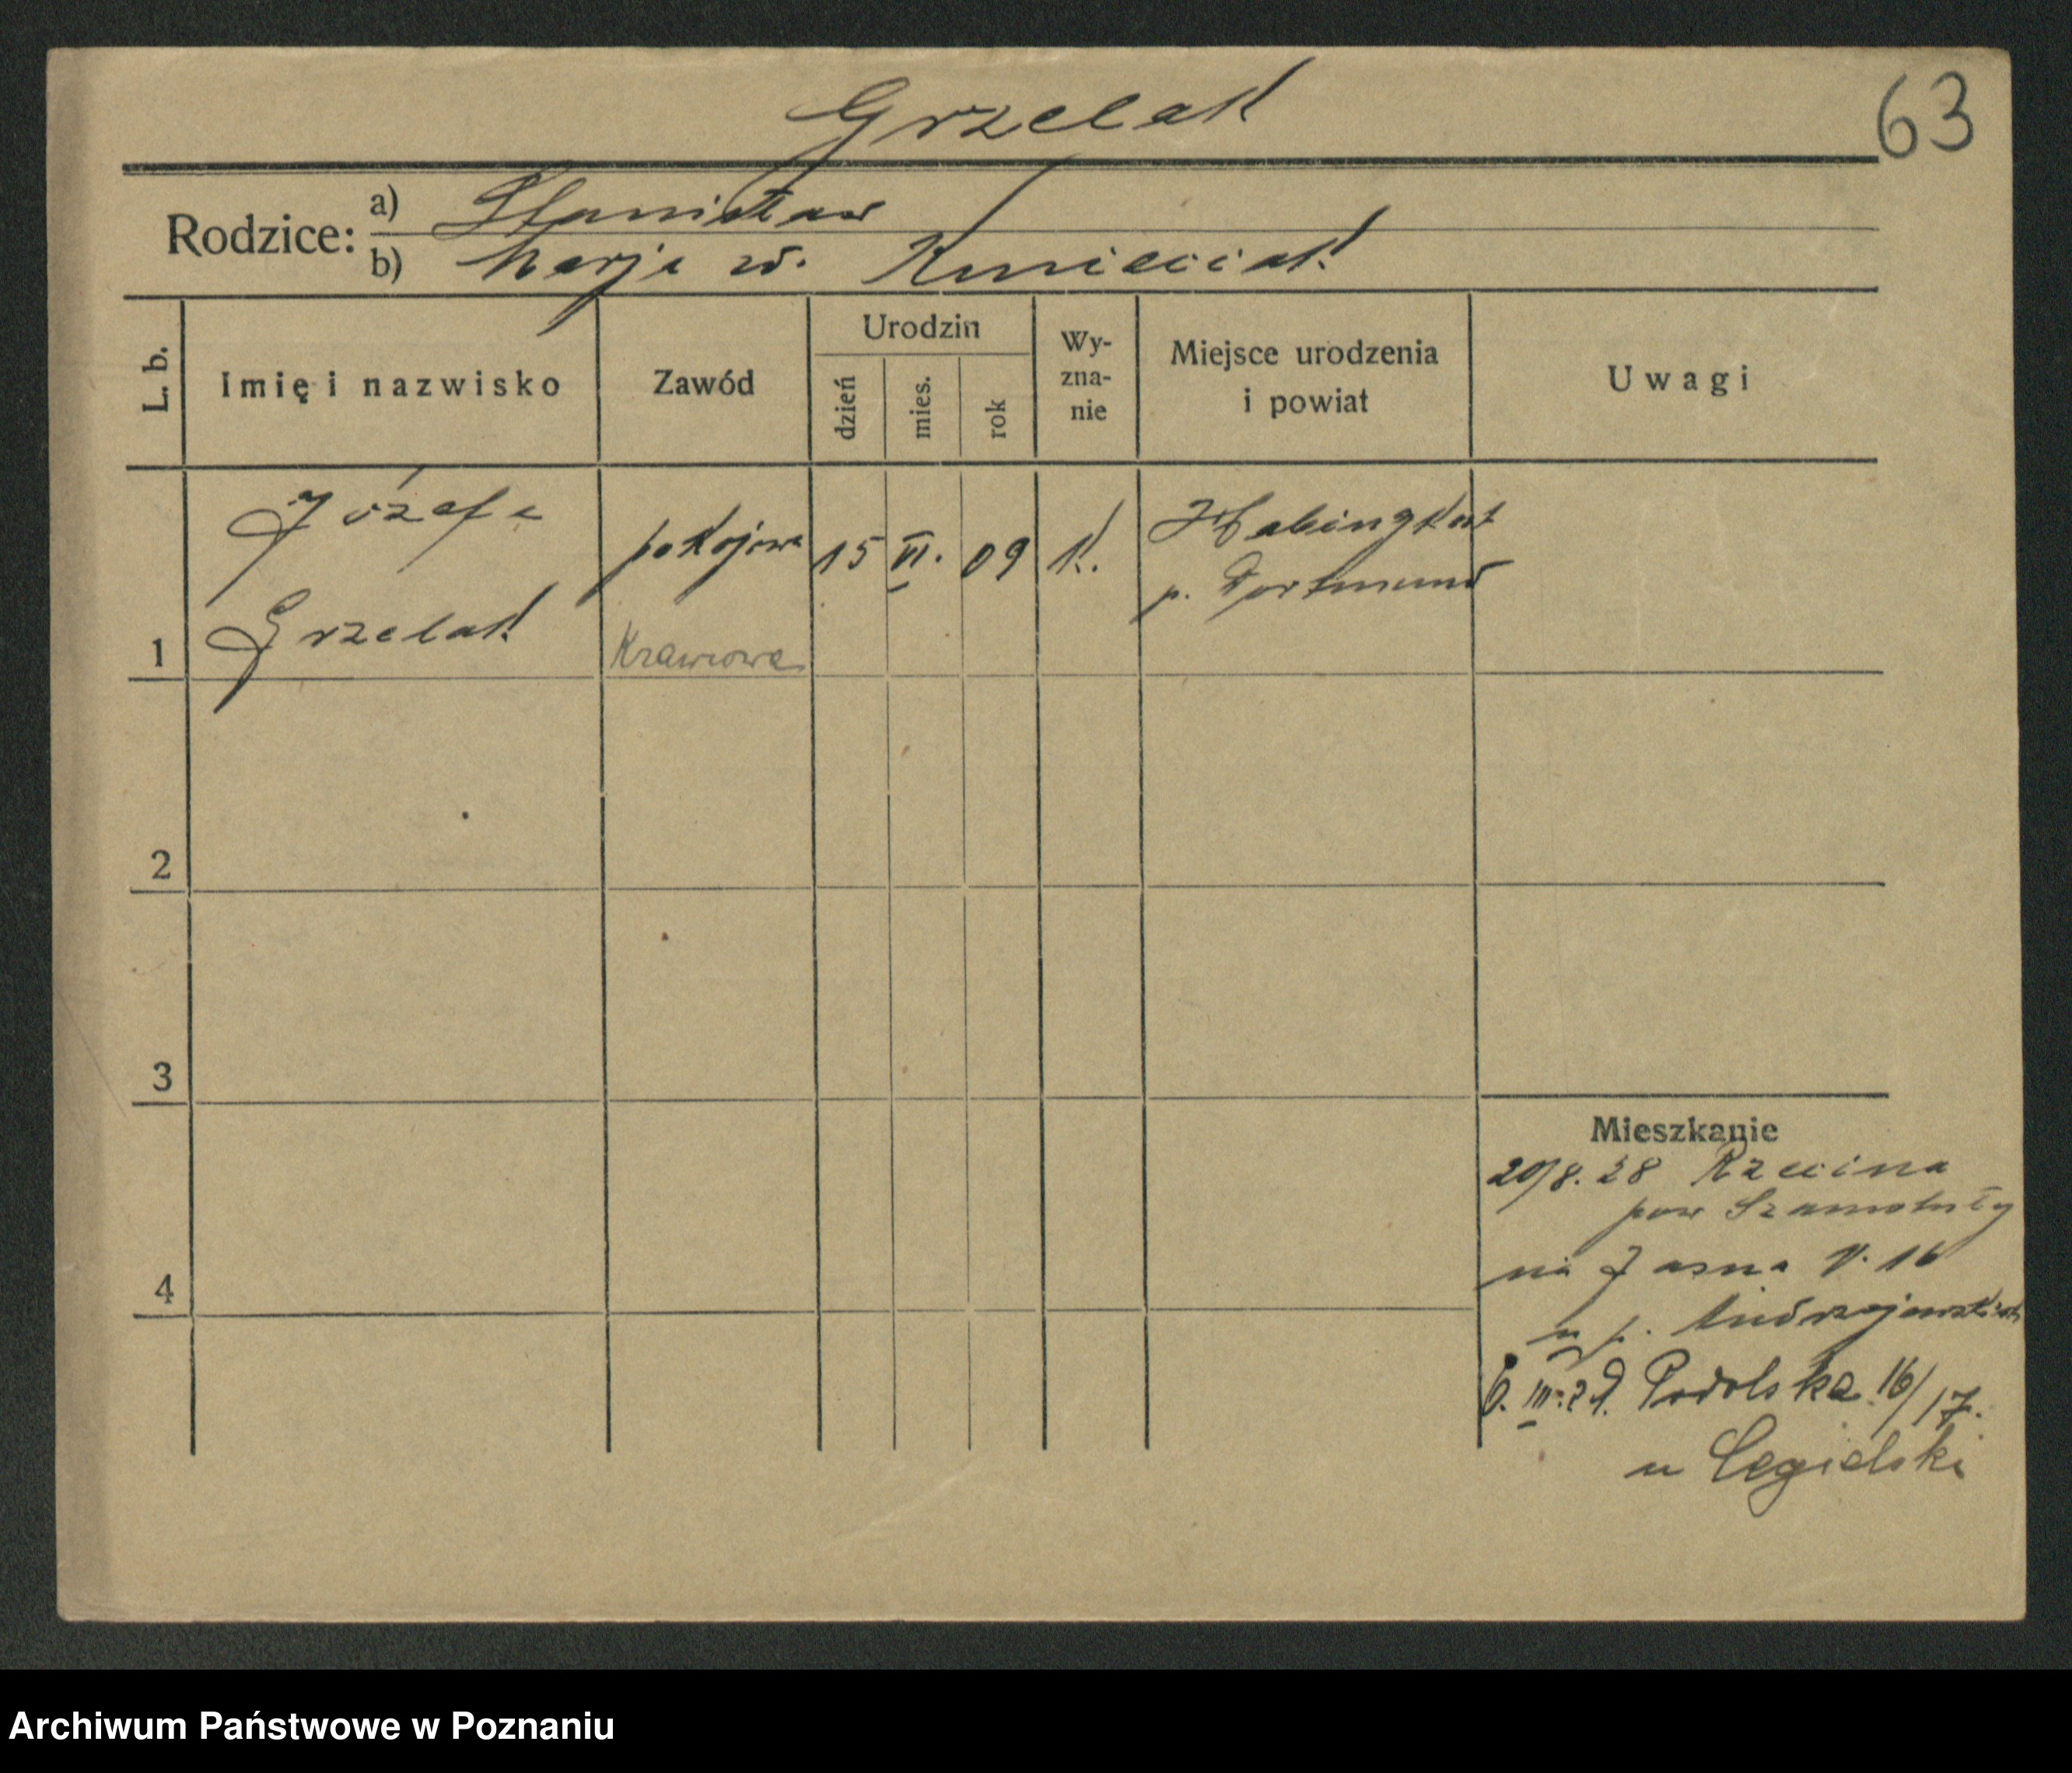 Grzelak
63
Rodzice: a) Stanisław
b) Marja zd. Kmieciak
L. b.
Imię i nazwisko
Zawód
Urodzin
dzień
mies.
rok
Wy-
zna-
nie
Miejsce urodzenia
i powiat
Uwagi
Józefa
pokojowa 15 VI. 09 K. Habinghorst
p. Dortmund
1 Grzelak
Krawcowa
2
3
4
Mieszkanie
20/8. 28 Rzecina
pow Szamotuły
na Jasna V. 16
u p. Andrzejewskich
6. III. 29. Podolska 16/17.
u Cegielski
Archiwum Państwowe w Poznaniu